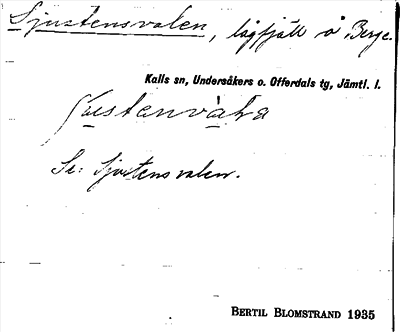 Sjustensvalen, lågfjäll å Berge.
Kalls sn, Undersåkers o. Offerdals tg, Jämtl. l.
Se: Sjustensvalen.
BERTIL BLOMSTRAND 1935